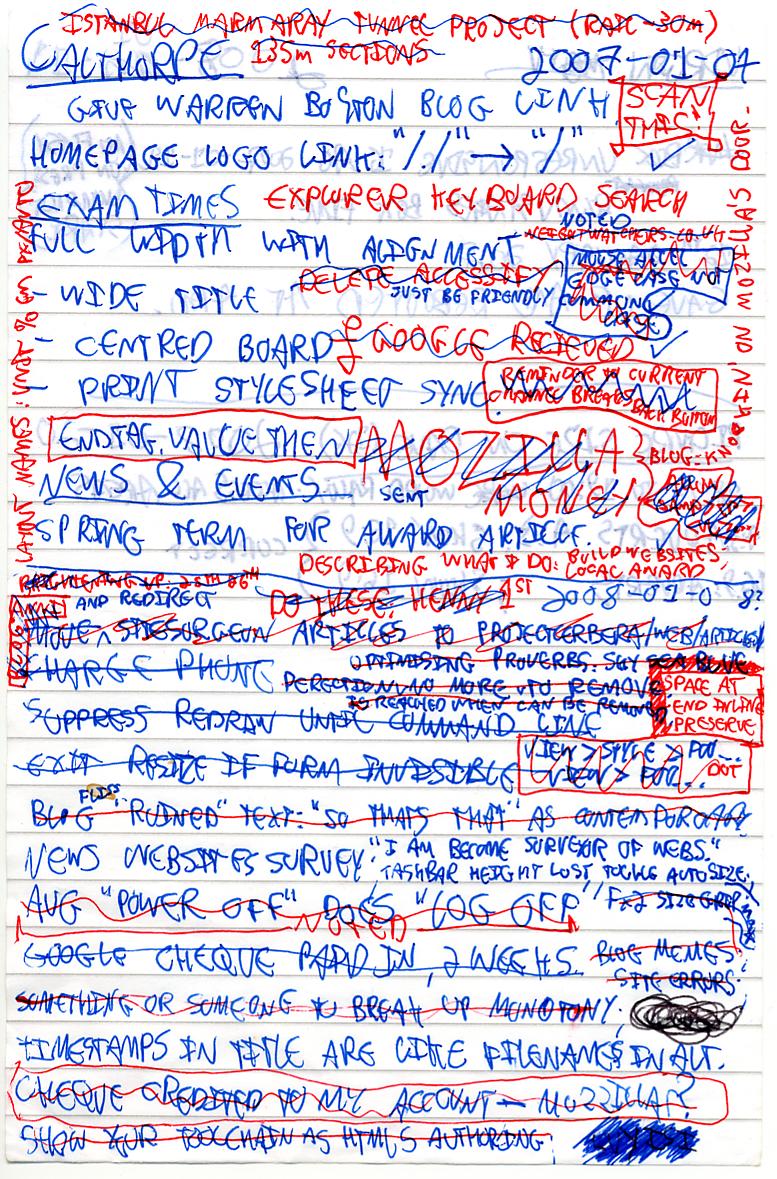 ISTANBUL MARMARAY TUNNEL PROJECT (RAIL -30M)
135M SECTIONS
CALTHORPE 2007-01-04
GIVE WARREN BOSTON BLOG LINK
SCAN
THIS!
HOMEPAGE LOGO LINK: "//" → "/" ✓
EXAM TIMES
EXPLORER KEYBOARD SEARCH
NOTED
WEIGHTWATCHERS.CO.UK
FULL WIDTH WITH ALIGNMENT
MOUSE ACCEL
EDGE CASE NOT
COMMONG
DELETE ACCESSIFY
JUST BE FRIENDLY
- WIDE TITLE
- CENTRED BOARD
£ GOOGLE RECIEVED ✓
- PRINT STYLESHEET SYNC
REMINDER TO CURRENT
NAME BREAKS
BACK BUTTON
ENDTAG.VALUE THEN
MOZILLA
MONEY
BLOG: KNOCKIN' ON MOZILLA'S DOOR.
LATIN1 NAMES:
NEWS & EVENTS
SENT
SPRING TERM FOR AWARD ARTICLE. ✓
DESCRIBING WHAT I DO: BUILD WEBSITES,
LOCAL AWARD
AND REDIRECT
DO THESE, 1ST
2008-01-08?
MOVE SITESURGEON ARTICLES TO PROJECTCERBERA/WEB/ARTICLES/
CHARGE PHONE
OPTIMISING PROVERBS:
PERFECTION: NO MORE TO REMOVE
IS REACHED WHEN CAN BE REMOVED
SPACE AT
END INLINE
PRESERVE
SUPPRESS REDRAW UNTIL COMMAND LINE
EXIT RESIZE IF FORM INVISIBLE
VIEW > STYLE > FOO...
VIEW > FOO...
DOT
BLOG "RUINED" TEXT: "SO THATS THAT" AS CONTEMPORARY
NEWS WEBSITES SURVEY
"I AM BECOME SURVEYOR OF WEBS."
TASKBAR HEIGHT LOST TOGGLE AUTOSIZE.
AVG "POWER OFF" DOES "LOG OFF"
NOTED
SIZE GRIP
GOOGLE CHEQUE PAID IN, 2 WEEKS.
BLOG MEMES
SITE ERRORS.
SOMETHING OR SOMEONE TO BREAK UP MONOTONY.
TIMESTAMPS IN TITLE ARE LIKE FILENAMES IN ALT.
CHEQUE CREDITED TO MY ACCOUNT - MOZZILLAR?
SHOW YOUR TOOLCHAIN AS HTML5 AUTHORING.